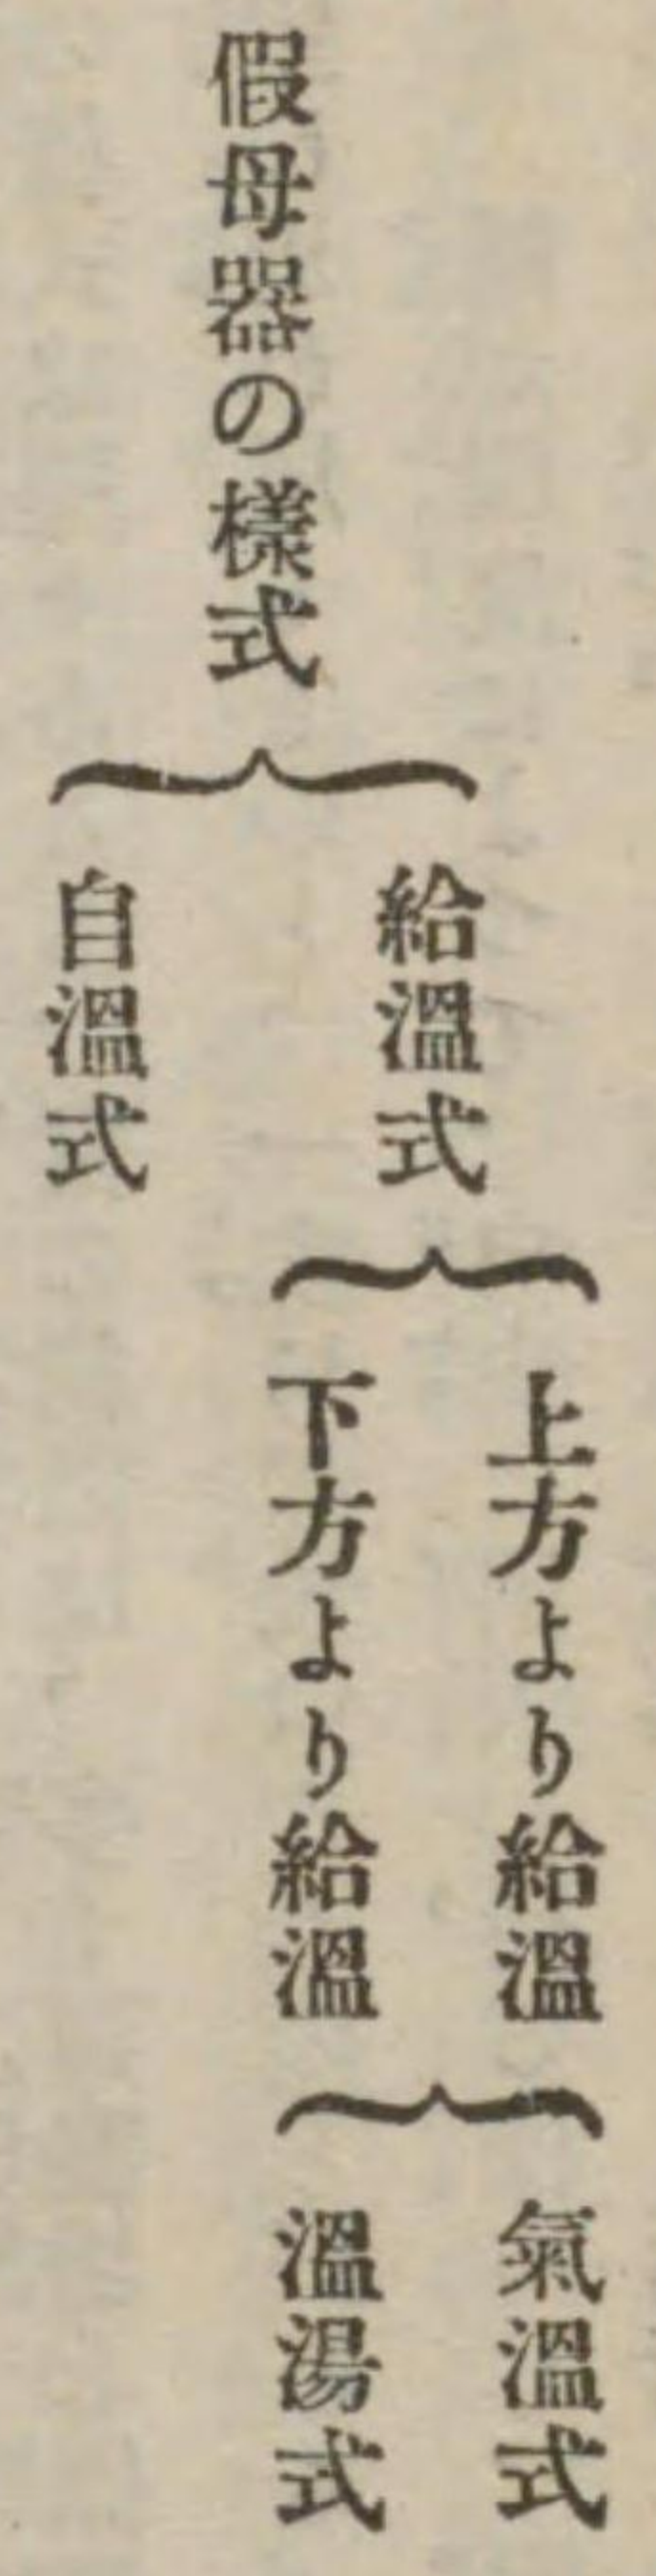 假母器の樣式
給溫式
自溫式
上方より給溫
下方より給溫
氣溫式
溫湯式